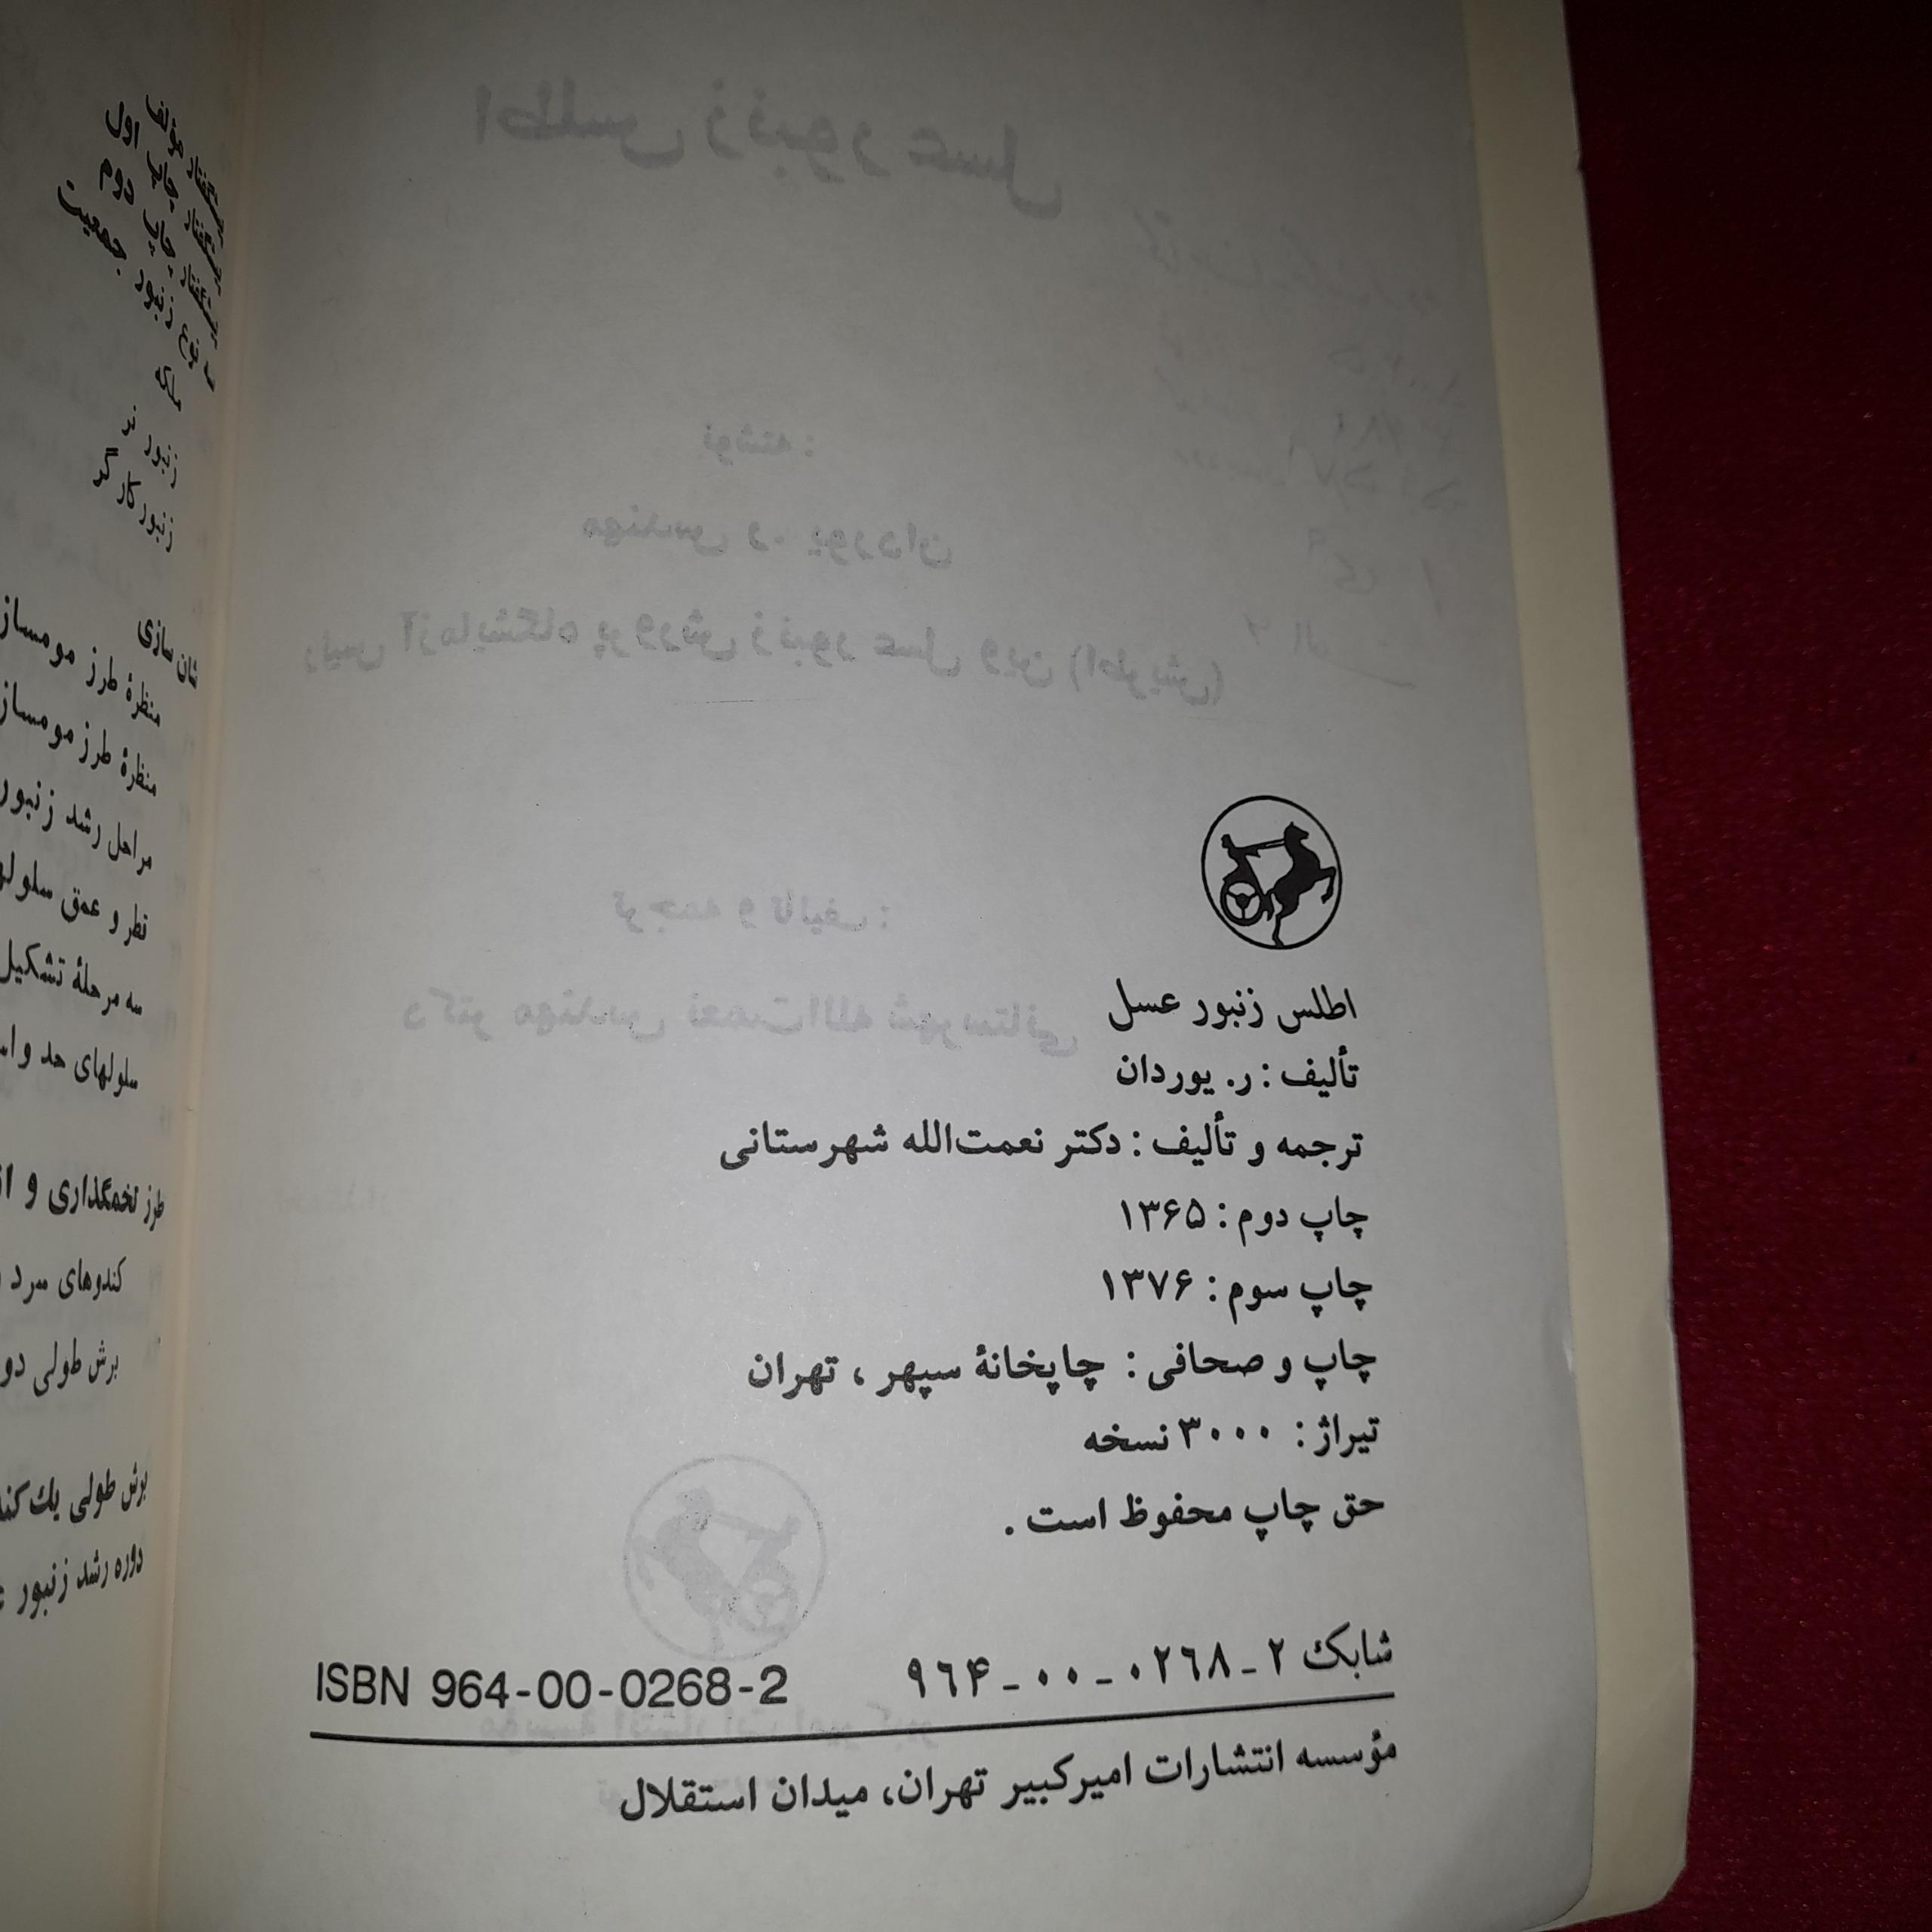 اطلس زنبور عسل
تألیف : ر. یوردان
ترجمه و تألیف : دکتر نعمت‌الله شهرستانی
چاپ دوم : ۱۳۶۵
چاپ سوم : ۱۳۷۶
چاپ و صحافی : چاپخانهٔ سپهر ، تهران
تیراژ : ۳۰۰۰ نسخه
حق چاپ محفوظ است .
شابک ۲-۰۲۶۸-۰۰-۹۶۴ ISBN 964-00-0268-2
مؤسسه انتشارات امیرکبیر تهران، میدان استقلال
مؤلف
چاپ اول
چاپ دوم
نوع زنبور جمعیت
ملکه
زنبور نر
زنبور کارگر
شان سازی
منظرهٔ طرز مومساز
منظرهٔ طرز مومساز
مراحل رشد زنبور
قطر و عمق
سه مرحلهٔ تشکیل
سلولهای حد
طرز تخمگذاری و
کندوهای سرد
برش طولی دو
برش طولی یك
دوره رشد زنبور